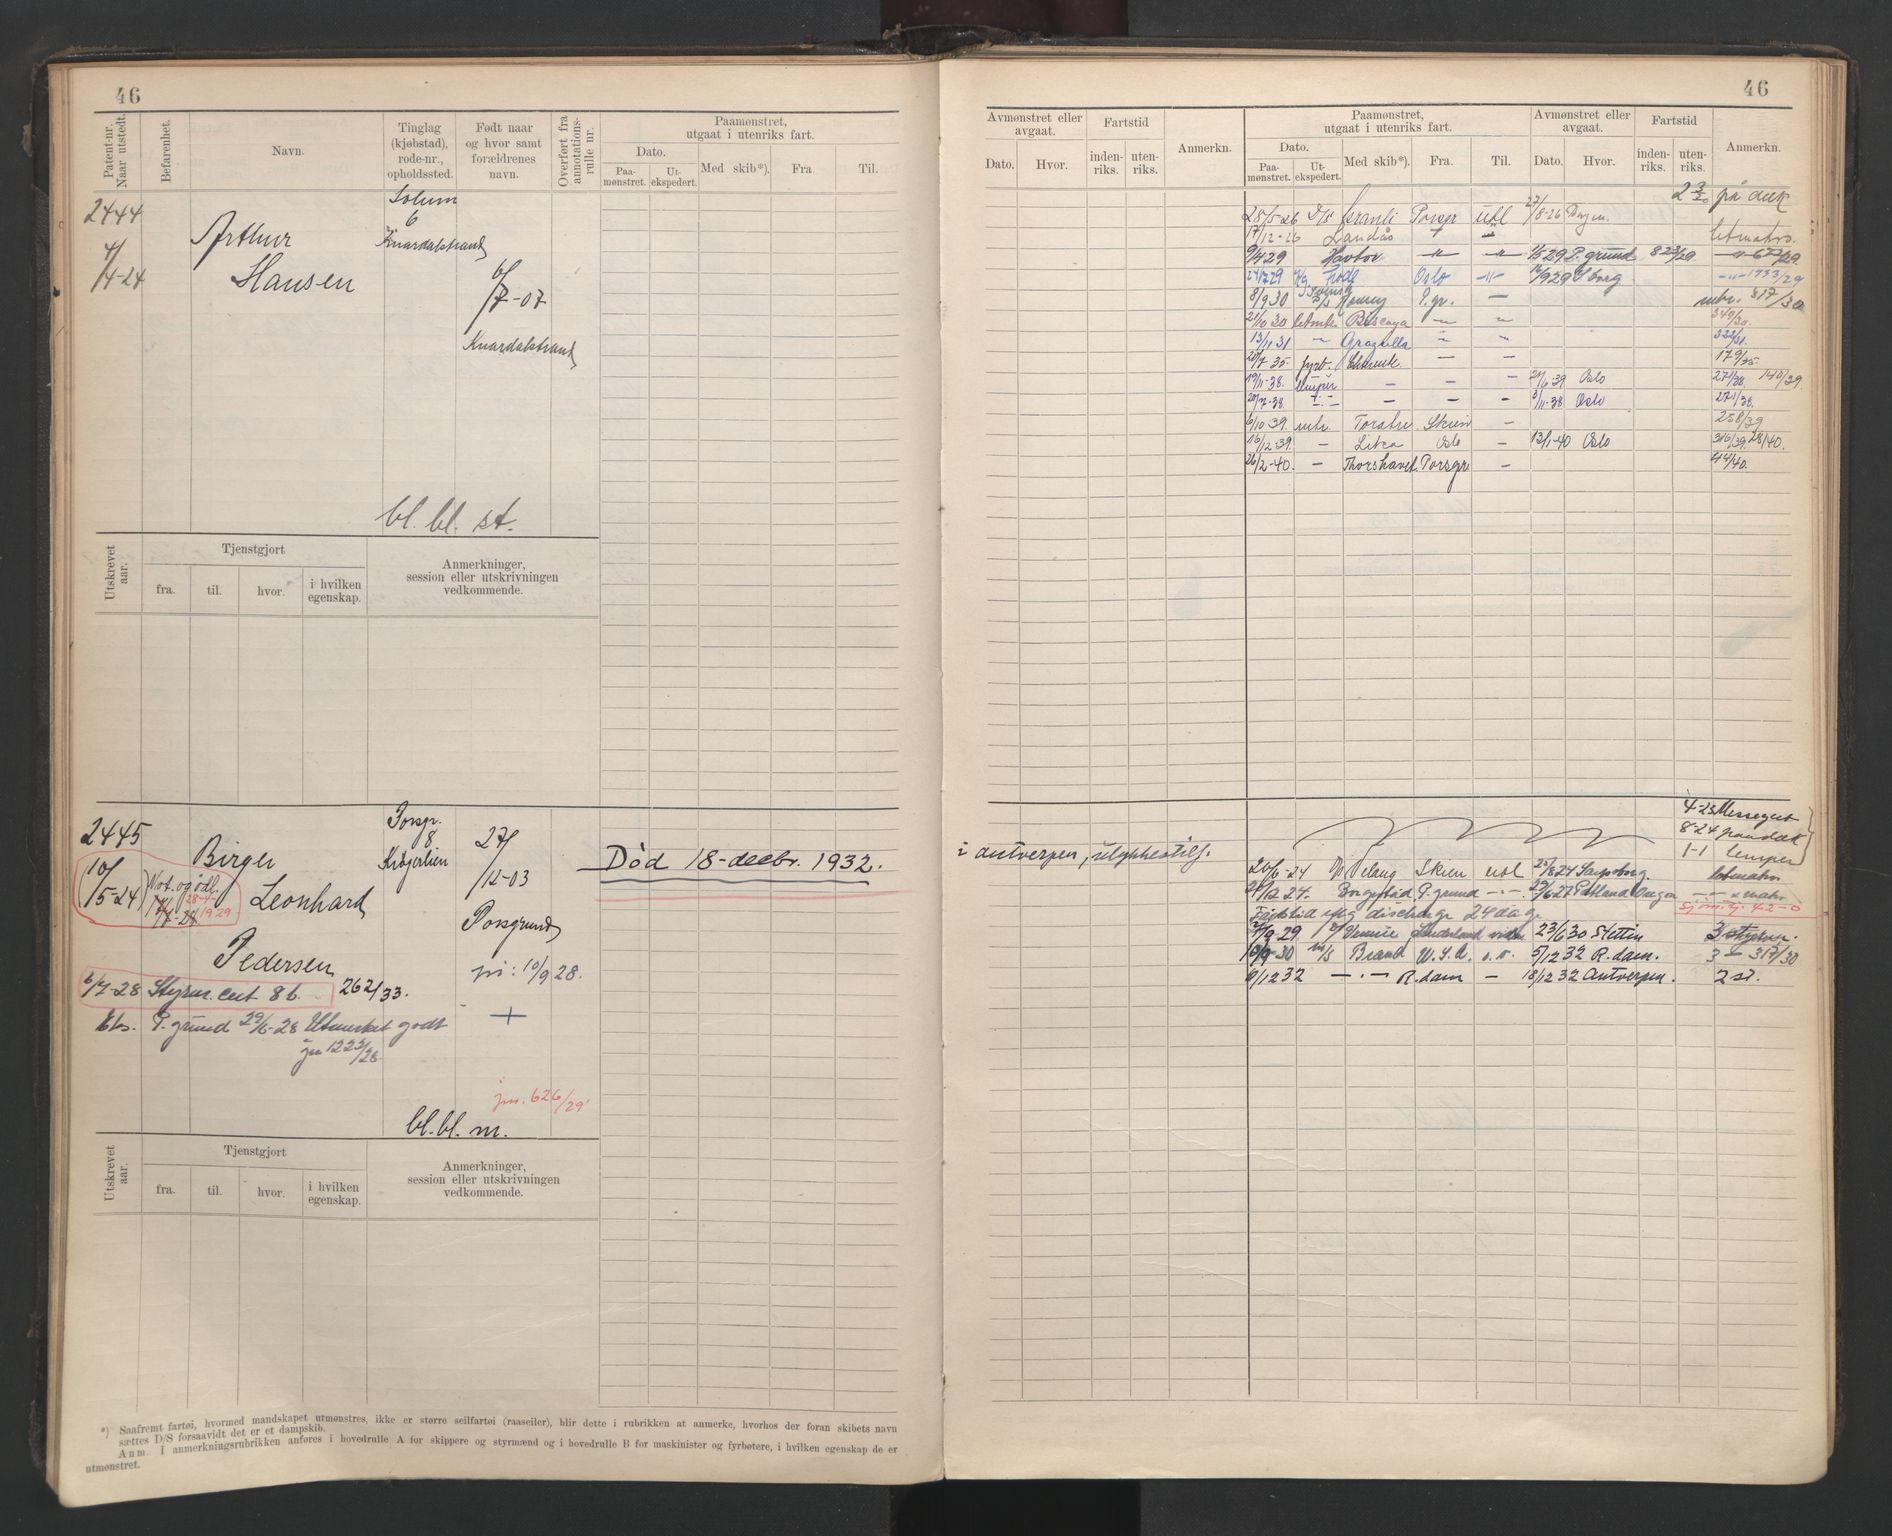 46
Patent-nr. Naar utstedt.
Befarenhet.
Navn.
Tinglag (kjøbstad), rode-nr., opholdssted.
Født naar og hvor samt forældrenes navn.
Overført fra annotations-rulle nr.
Paamønstret, utgaat i utenriks fart.
Dato.
Paa-mønstret.
Ut-ekspedert.
Med skib*).
Fra.
Til.
2444
4/4-24
Arthur
Hansen
Solum
6
Knardalstrand
6/7-07
Knardalstrand
bl. bl. st.
Utskrevet aar.
Tjenstgjort
fra.
til.
hvor.
i hvilken egenskap.
Anmerkninger, session eller utskrivningen vedkommende.
2445
10/5-24
Not. og ødl.
28-4-1929
Birger
Leonhard
Pedersen
Porsgr.
8
27/12-03
Porsgrund
jn: 10/9 28.
Død 18-decbr. 1932.
6/7-28 Styrm. cert 8 b. 262/33.
P.grund 29/6-28 Utmerket godt
jn 1223/28
+
jn. 626/29
bl. bl. m.
Utskrevet aar.
Tjenstgjort
fra.
til.
hvor.
i hvilken egenskap.
Anmerkninger, session eller utskrivningen vedkommende.
*) Saafremt fartøi, hvormed mandskapet utmønstres, ikke er større seilfartøi (raaseiler), blir dette i rubrikken at anmerke, hvorhos der foran skibets navn
sættes D/S forsaavidt det er et dampskib.
Anm. I anmerkningsrubrikken anføres i hovedrulle A for skippere og styrmænd og i hovedrulle B for maskinister og fyrbøtere, i hvilken egenskap de er
utmønstret.
46
Avmønstret eller avgaat.
Dato.
Hvor.
Fartstid
inden-riks.
uten-riks.
Anmerkn.
Paamønstret, utgaat i utenriks fart.
Dato.
Paa-mønstret.
Ut-ekspedert.
Med skib*).
Fra.
Til.
Avmønstret eller avgaat.
Dato.
Hvor.
Fartstid
inden-riks.
uten-riks.
Anmerkn.
på dæk
28/5-26 D/S Porsgr utl 27/8-26
17/12-26 Landås " " letmatro.
9/4 29 Havbor " " 1/5 29 P.grund 823/29
Oslo -"- 9 29 S.borg
8/9 30 P.gr. - mtr. 317/30
21/10 30 letmtr. Biscaya " " 349/30.
13/11 31 " " " 322/31.
20/7-35 fyrb. - - 179/35.
19/11-38. lemper - - - 21/6 39 Oslo 271/38. 140/39
20/7-38. - - - 3/11-38 Oslo 271/38.
6/10 39. mtr. Skien - 258/39
16/12 39. - Oslo - 13/1-40 Oslo 316/39. 28/40.
26/2-40. - Thorshavet. Porsgr. - 44/40.
4-23 Messegut
8-24 paa dæk
1-1 lemper
i Antverpen, ulykkestilf.
26/6-24 Skien utl 25/8 24 Sarpsborg. letmatr
12 24. Borgestad P.grund -"- 29/6 27 Portland Oregon
Sjøm.tj. 42-0
Fartstid iflg discharge 24 dage
9-29 23/6 30 Stettin 3 styrm.
9-30 M/S Brand U.S.A. 5/12 32 R.dam. 317/30
6/12 32 -"- R.dam - 18/12 32 Antverpen. 2 st.